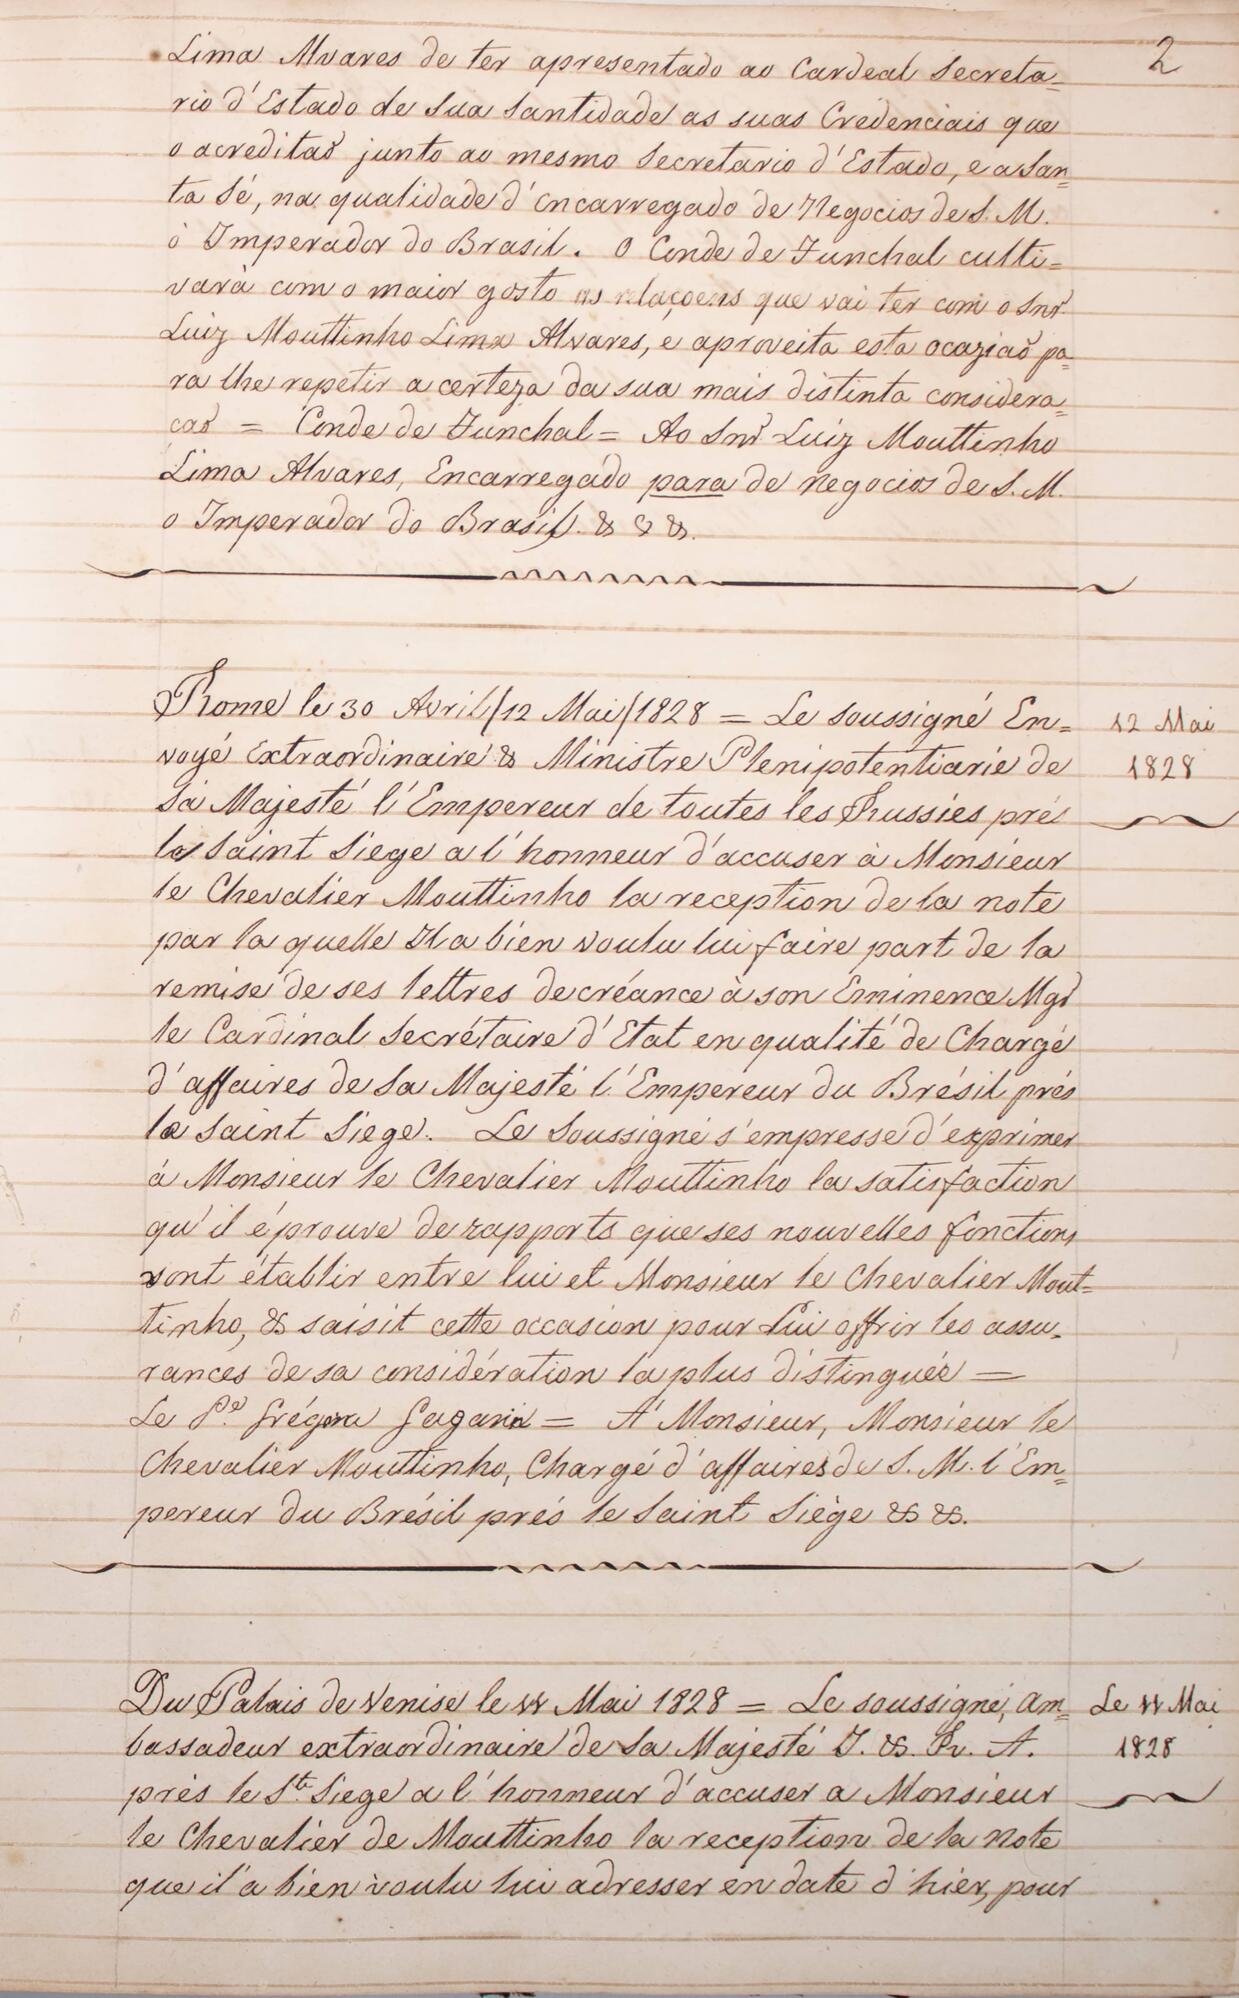 2
Lima Alvares de ter apresentado ao Cardeal Secreta=
rio d'Estado de Sua Santidade as suas Credenciais que
o acreditaõ junto ao mesmo Secretario d'Estado, e a San=
ta Sé, na qualidade d'Encarregado de Negocios de S. M.
ò Imperador do Brasil. O Conde de Funchal culti=
varà com o maior gosto as relaçoens que vai ter com o Snr.
Luiz Mouttinho Lima Alvares, e aproveita esta ocaziaõ pa=
ra lhe repetir a certeza da sua mais distinta considera=
caõ = Conde de Funchal = Ao Snr. Luiz Mouttinho
Lima Alvares, Encarregado para de negocios de S. M.
o Imperador do Brasil. & & &.
Rome le 30 Avril/12 Mai/1828 = Le soussigné En=
voyé Extraordinaire & Ministre Plenipotentiarie de
Sa Majesté l'Empereur de toutes les Russies prés
le Saint Siege a l'honneur d'accuser à Monsieur
le Chevalier Mouttinho la reception de la note
par la quelle Il a bien voulu lui faire part de la
remise de ses lettres de créance à son Eminence Mgr
le Cardinal Secrétaire d'Etat en qualité de Chargé
d'affaires de Sa Majesté l'Empereur du Brésil prés
le Saint Siege. Le Soussigné s'empresse d'exprimer
à Monsieur le Chevalier Mouttinho la satisfaction
qu'il éprouve de rapports que ses nouvelles fonctions
vont établir entre lui et Monsieur le Chevalier Mout=
tinho, & saisit cette occasion pour Lui offrir les assu=
rances de sa considération la plus distinguée =
Le P.ce Grégora Gagarin = A' Monsieur, Monsieur le
Chevalier Mouttinho, Chargé d'affaires de S. M. l'Em=
pereur du Brésil prés le Saint Siège & &.
12 Mai
1828
Du Palais de Venise le 11 Mai 1828 = Le soussigné, am=
bassadeur extraordinaire de Sa Majesté I. & R. A.
prés le St. Siege a l'honneur d'accuser a Monsieur
le Chevalier de Mouttinho la reception de la Note
que il a bien voulu lui adresser en date d'hier, pour
Le 11 Mai
1828